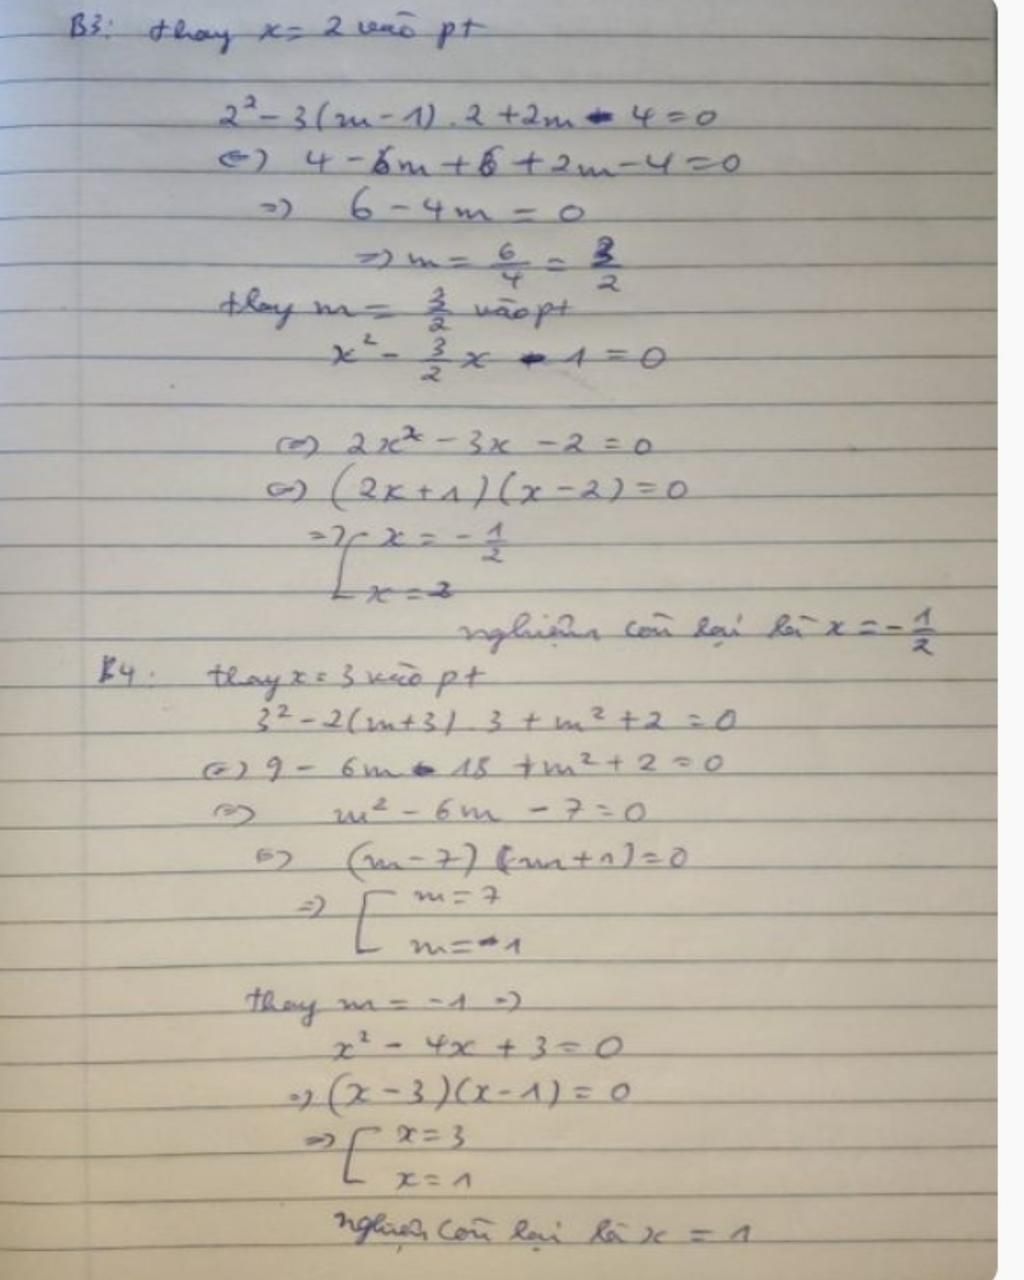 B3: thay x = 2 vào pt
2² - 3(m - 1) . 2 + 2m - 4 = 0
<=> 4 - 6m + 6 + 2m - 4 = 0
=> 6 - 4m = 0
=> m = 6/4 = 3/2
thay m = 3/2 vào pt
x² - 3/2 x - 1 = 0
<=> 2x² - 3x - 2 = 0
<=> (2x + 1)(x - 2) = 0
=> [ x = - 1/2
x = 2
nghiệm còn lại là x = - 1/2
B4. thay x = 3 vào pt
3² - 2(m + 3) . 3 + m² + 2 = 0
<=> 9 - 6m - 18 + m² + 2 = 0
<=> m² - 6m - 7 = 0
<=> (m - 7)(m + 1) = 0
=> [ m = 7
m = -1
thay m = -1 =>
x² - 4x + 3 = 0
=> (x - 3)(x - 1) = 0
=> [ x = 3
x = 1
nghiệm còn lại là x = 1